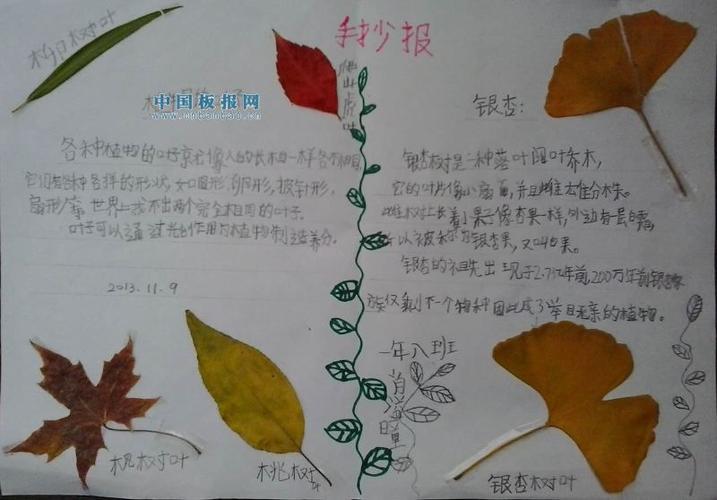 手抄报
柳树叶
爬山虎叶
中国板报网
银杏：
各种植物的叶子就像人的长相一样各不相同，
它们有各种各样的形状，如圆形，卵形，披针形，
扇形等，世界上找不出两个完全相同的叶子。
叶子可以通过光合作用为植物制造养分。
2013.11.9
银杏树是一种落叶阔叶乔木，
它的叶片像小扇面，并且雌雄分株。
雌树上长着小果子像杏果一样，外边有层白霜，
所以被称为银杏果，又叫白果。
银杏的祖先出现于2.7亿年前，200万年前银杏家
族仅剩下一个物种因此成了举目无亲的植物。
一年八班
枫树叶
桃树叶
银杏树叶